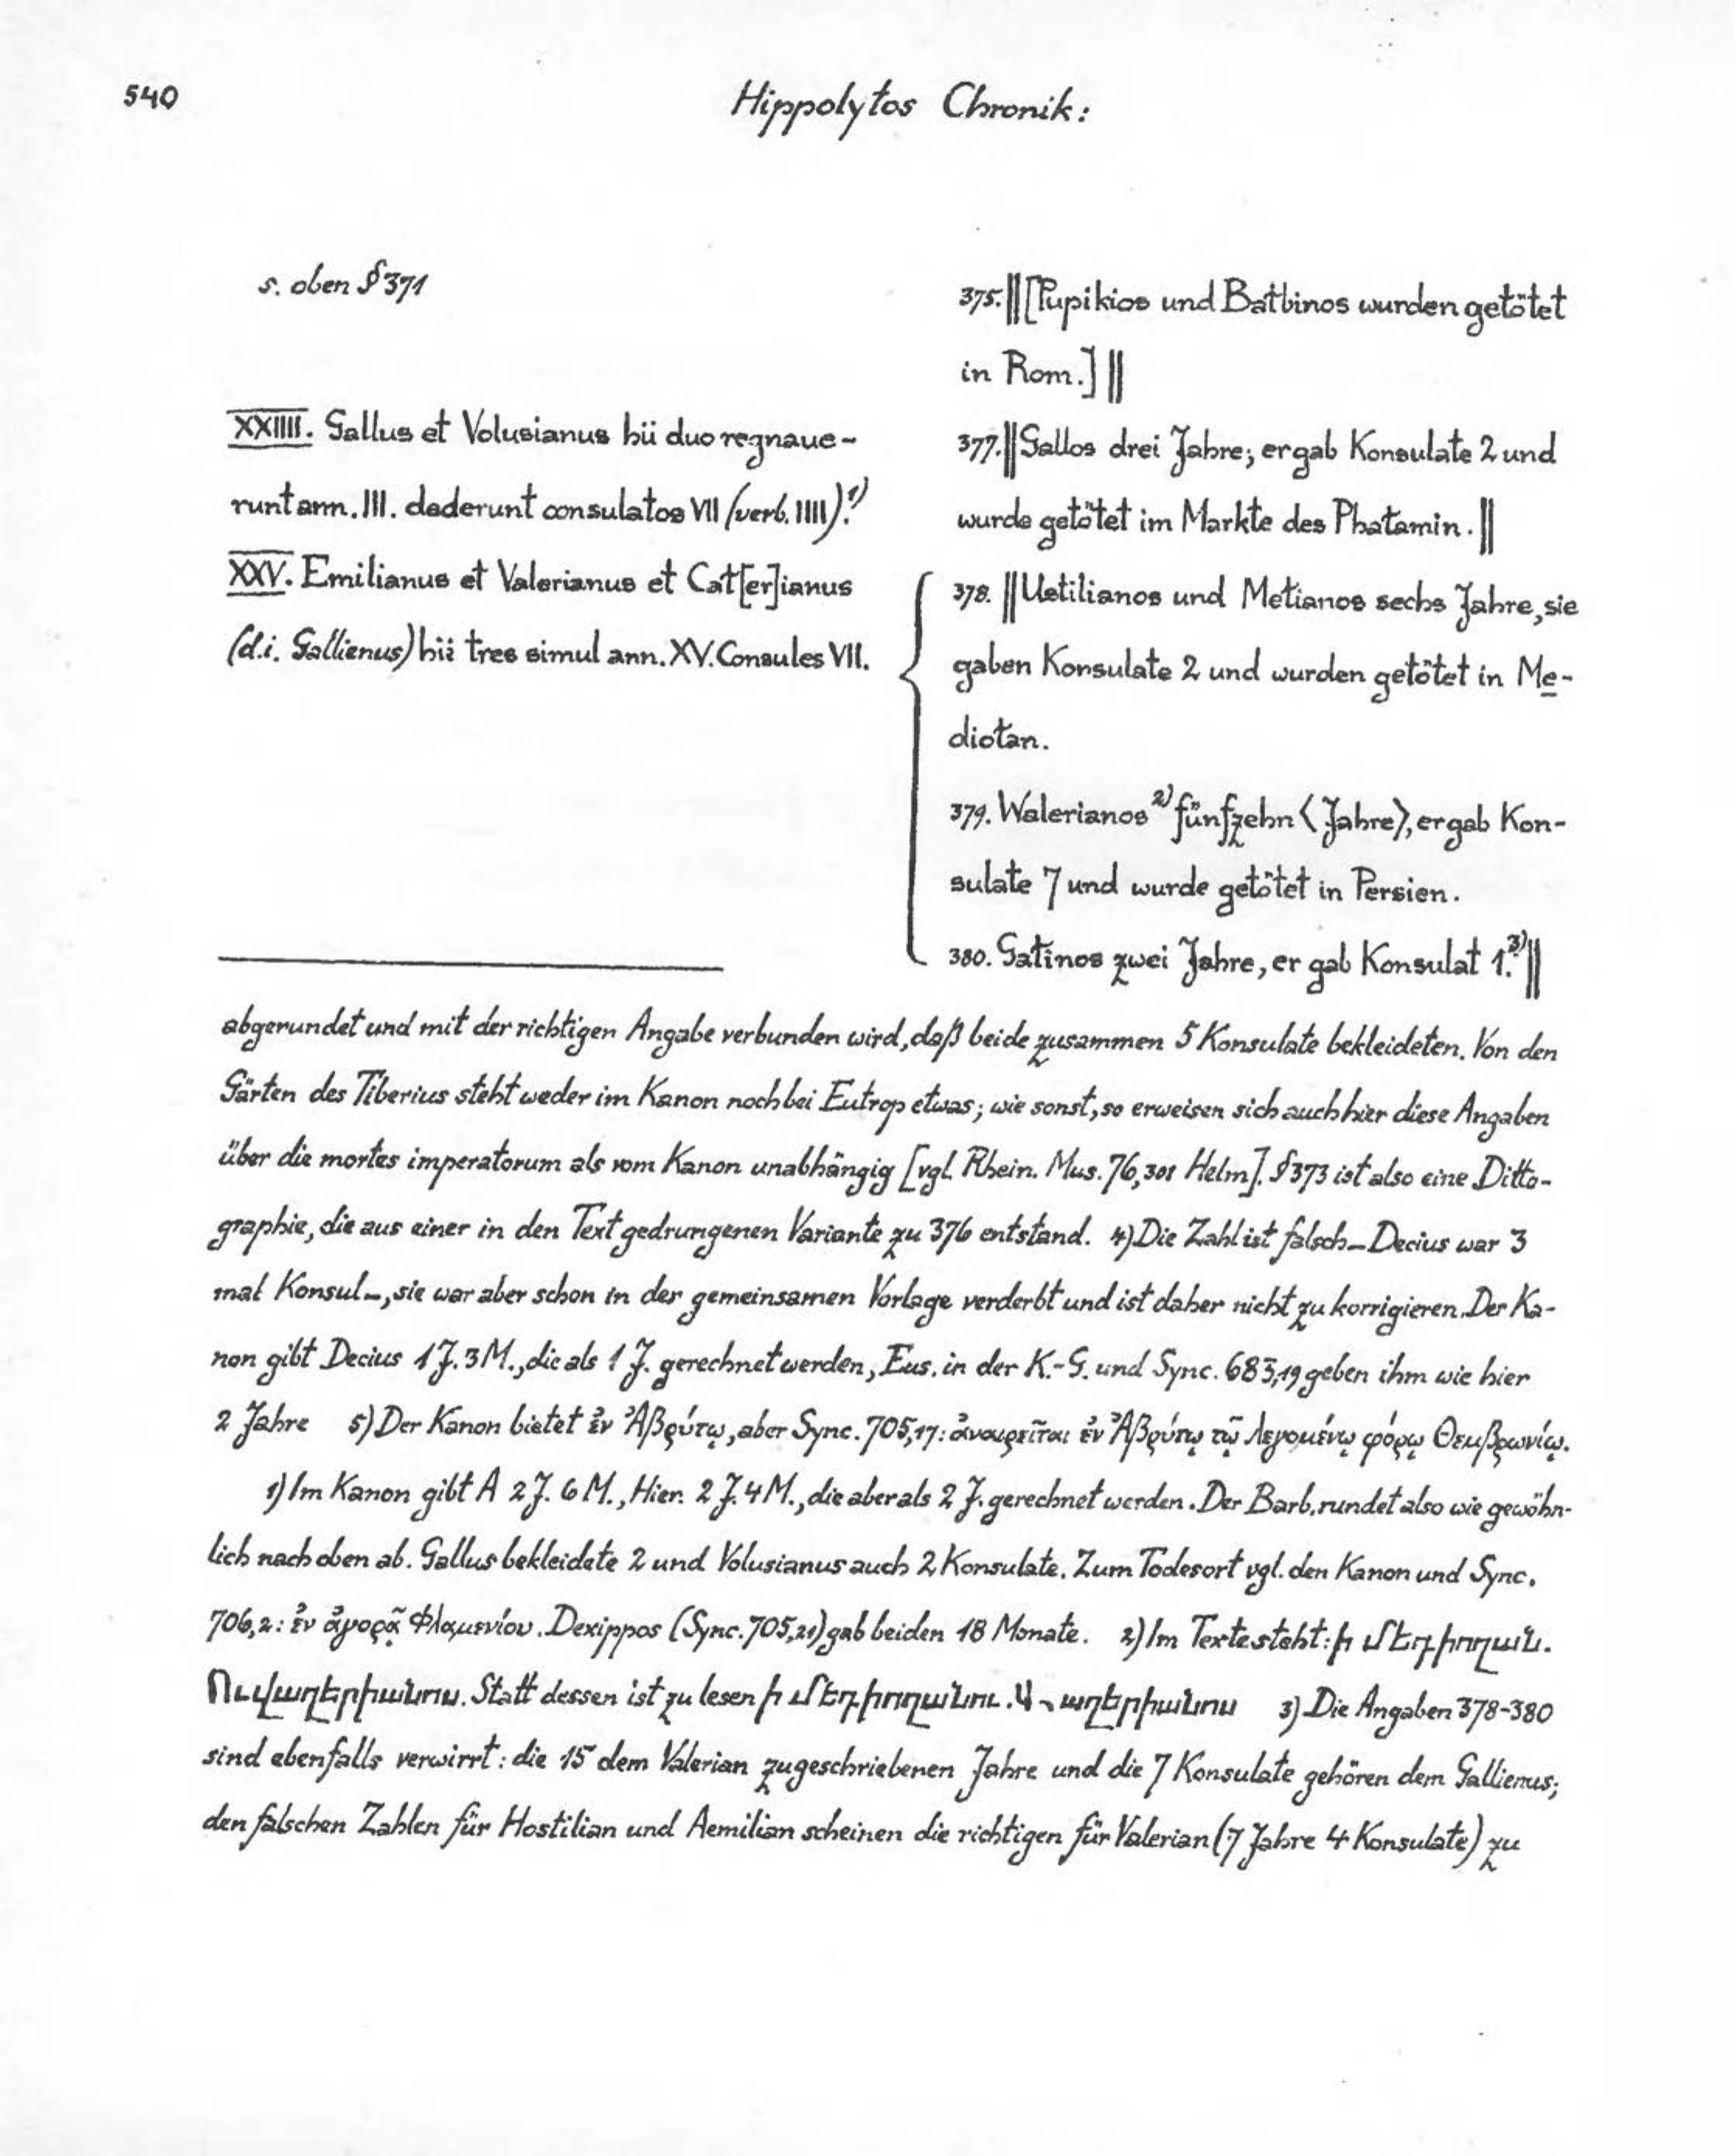 540
Hippolytos Chronik:
s. oben § 371
X̅X̅I̅I̅I̅I̅. Gallus et Volusianus hii duo regnaue-
runt ann. III. dederunt consulatos VII (verb. IIII).¹⁾
X̅X̅V̅. Emilianus et Valerianus et Cat[er]ianus
(d.i. Gallienus) hii tres simul ann. XV. Consules VII.
375. ‖ [Pupikios und Batbinos wurden getötet
in Rom.] ‖
377. ‖ Gallos drei Jahre; er gab Konsulate 2 und
wurde getötet im Markte des Phatamin. ‖
378. ‖ Ustilianos und Metianos sechs Jahre, sie
gaben Konsulate 2 und wurden getötet in Me-
diotan.
379. Walerianos ²⁾ fünfzehn ⟨Jahre⟩, er gab Kon-
sulate 7 und wurde getötet in Persien.
380. Gatinos zwei Jahre, er gab Konsulat 1.³⁾ ‖
abgerundet und mit der richtigen Angabe verbunden wird, daß beide zusammen 5 Konsulate bekleideten. Von den
Gärten des Tiberius steht weder im Kanon noch bei Eutrop etwas; wie sonst, so erweisen sich auch hier diese Angaben
über die mortes imperatorum als vom Kanon unabhängig [vgl. Rhein. Mus. 76,301 Helm]. § 373 ist also eine Ditto-
graphie, die aus einer in den Text gedrungenen Variante zu 376 entstand. 4) Die Zahl ist falsch – Decius war 3
mal Konsul –, sie war aber schon in der gemeinsamen Vorlage verderbt und ist daher nicht zu korrigieren. Der Ka-
non gibt Decius 1 J. 3 M., die als 1 J. gerechnet werden, Eus. in der K.-G. und Sync. 683,19 geben ihm wie hier
2 Jahre 5) Der Kanon bietet ἐν Ἀβρύτῳ, aber Sync. 705,17: ἀναιρεῖται ἐν Ἀβρύτῳ τῷ λεγομένῳ φόρῳ Θεμβρωνίῳ.
1) Im Kanon gibt A 2 J. 6 M., Hier. 2 J. 4 M., die aber als 2 J. gerechnet werden. Der Barb. rundet also wie gewöhn-
lich nach oben ab. Gallus bekleidete 2 und Volusianus auch 2 Konsulate. Zum Todesort vgl. den Kanon und Sync.
706,2: ἐν ἀγορᾷ Φλαμενίου. Dexippos (Sync. 705,21) gab beiden 18 Monate. 2) Im Texte steht: ի մեդիողան.
Ուվաղերիանոս. Statt dessen ist zu lesen ի մեդիողանու. Վաղերիանոս 3) Die Angaben 378-380
sind ebenfalls verwirrt: die 15 dem Valerian zugeschriebenen Jahre und die 7 Konsulate gehören dem Gallienus;
den falschen Zahlen für Hostilian und Aemilian scheinen die richtigen für Valerian (7 Jahre 4 Konsulate) zu